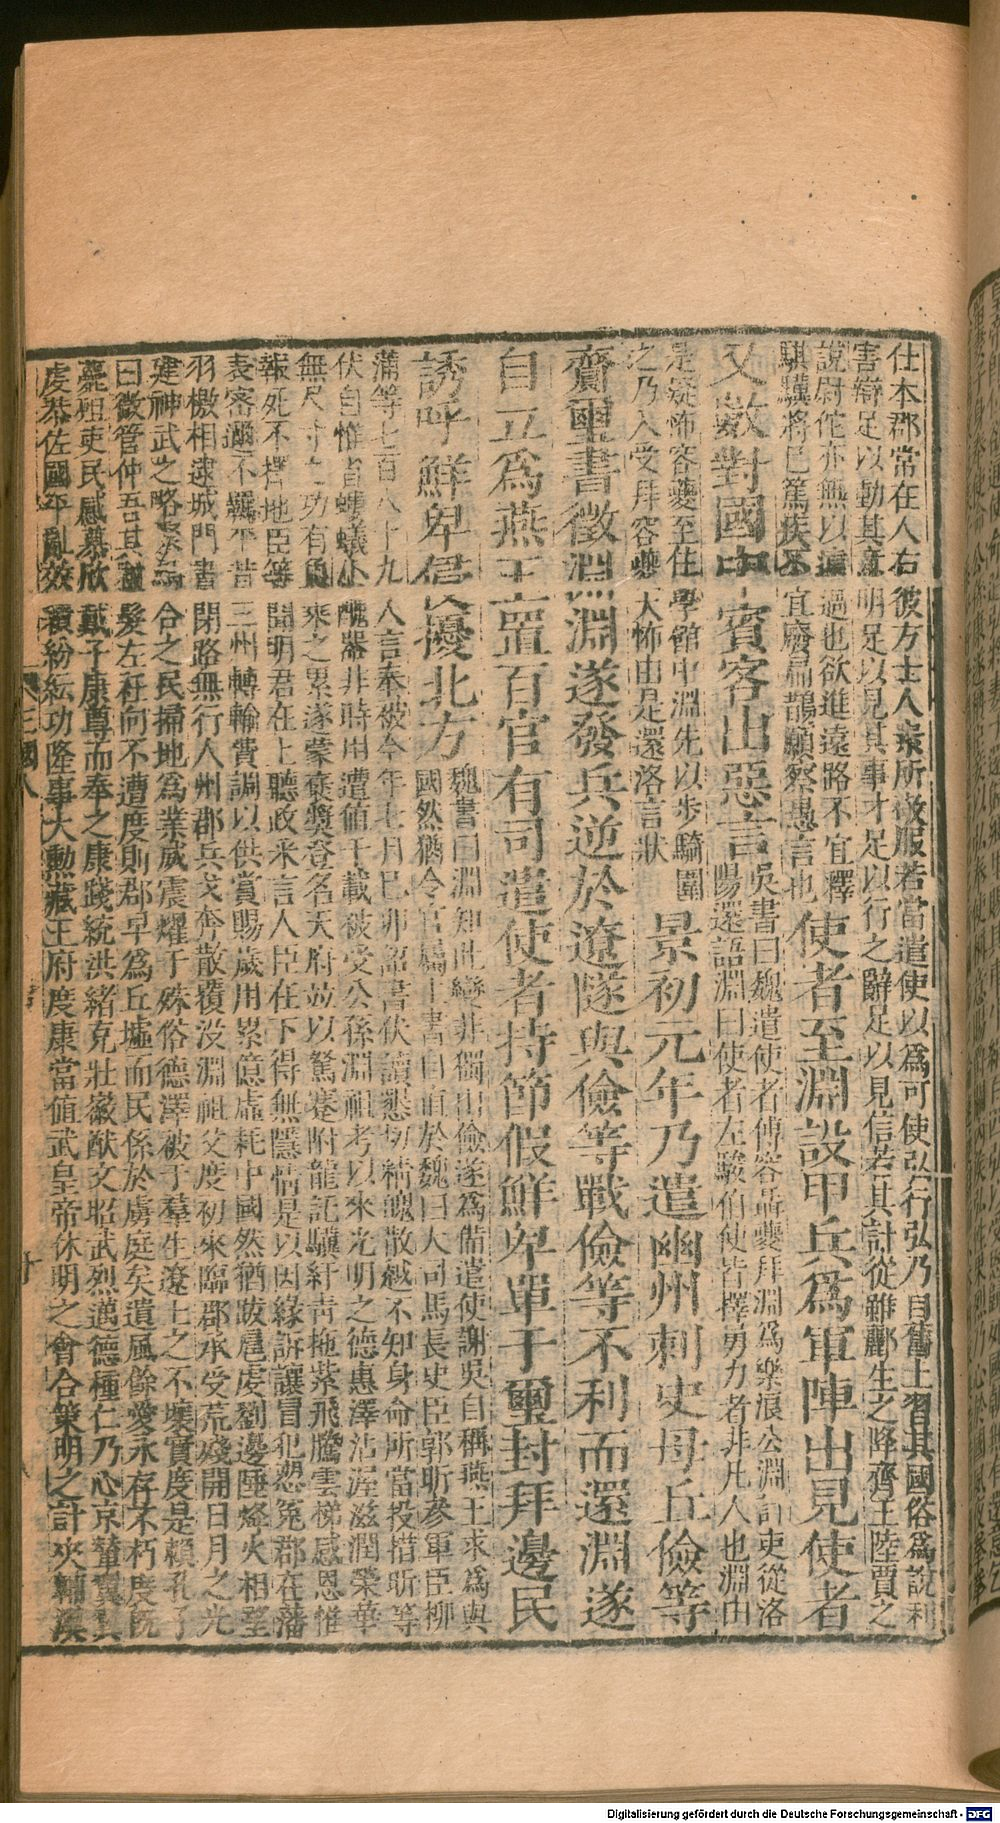 仕本郡常在人右彼方士人素所敬服若當遣使以爲可使弘行弘乃自舊土習其國俗爲說利
害辯足以動其意明足以見其事才足以行之辭足以見信若其計從雖酈生之降齊王陸賈之
說尉佗亦無以遠過也欲進遠路不宜釋
騏驥將已篤疾不宜廢扁鵲願察愚言也
使者至淵設甲兵爲軍陣出見使者
又數對國中賓客出惡言
吳書曰魏遣使者傅容聶夔拜淵爲樂浪公淵計吏從洛
陽還語淵曰使者左駿伯使皆擇勇力者非凡人也淵由
是疑怖容夔至住學館中淵先以步騎圍
之乃入受拜容夔大怖由是還洛言狀
景初元年乃遣幽州刺史毋丘儉等
齎璽書徵淵淵遂發兵逆於遼隧與儉等戰儉等不利而還淵遂
自立爲燕王置百官有司遣使者持節假鮮卑單于璽封拜邊民
誘呼鮮卑侵擾北方
魏書曰淵知此變非獨出儉遂爲備遣使謝吳自稱燕王求爲與
國然猶令官屬上書自直於魏曰大司馬長史臣郭昕參軍臣柳
蒲等七百八十九人言奉被今年七月己卯詔書伏讀懇切精魄散越不知身命所當投措昕等
伏自惟省螻蟻小醜器非時用遭值千載被受公孫淵祖考以來光明之德惠澤沾渥滋潤榮華
無尺寸之功有負來之累遂蒙襃獎登名天府並以駑蹇附龍託驥紆青拖紫飛騰雲梯感恩惟
報死不擇地臣等聞明君在上聽政采言人臣在下得無隱情是以因緣訴讓冒犯愬冤郡在藩
表密邇不羈平昔三州轉輸費調以供賞賜歲用累億虛耗中國然猶跋扈虔劉邊陲烽火相望
羽檄相逮城門晝閉路無行人州郡兵戈奔散覆沒淵祖父度初來臨郡承受荒殘開日月之光
建神武之略聚烏合之民掃地爲業威震燿于殊俗德澤被于羣生遼土之不壞實度是賴孔子
曰微管仲吾其被髮左衽向不遭度則郡早爲丘墟而民係於虜庭矣遺風餘愛永存不朽度既
薨殂吏民感慕欣戴子康尊而奉之康踐統洪緒克壯徽猷文昭武烈邁德種仁乃心京輦翼翼
虔恭佐國平亂效績紛紜功隆事大勳藏王府度康當值武皇帝休明之會合策明之計夾輔漢
三國八
Digitalisierung gefördert durch die Deutsche Forschungsgemeinschaft - DFG